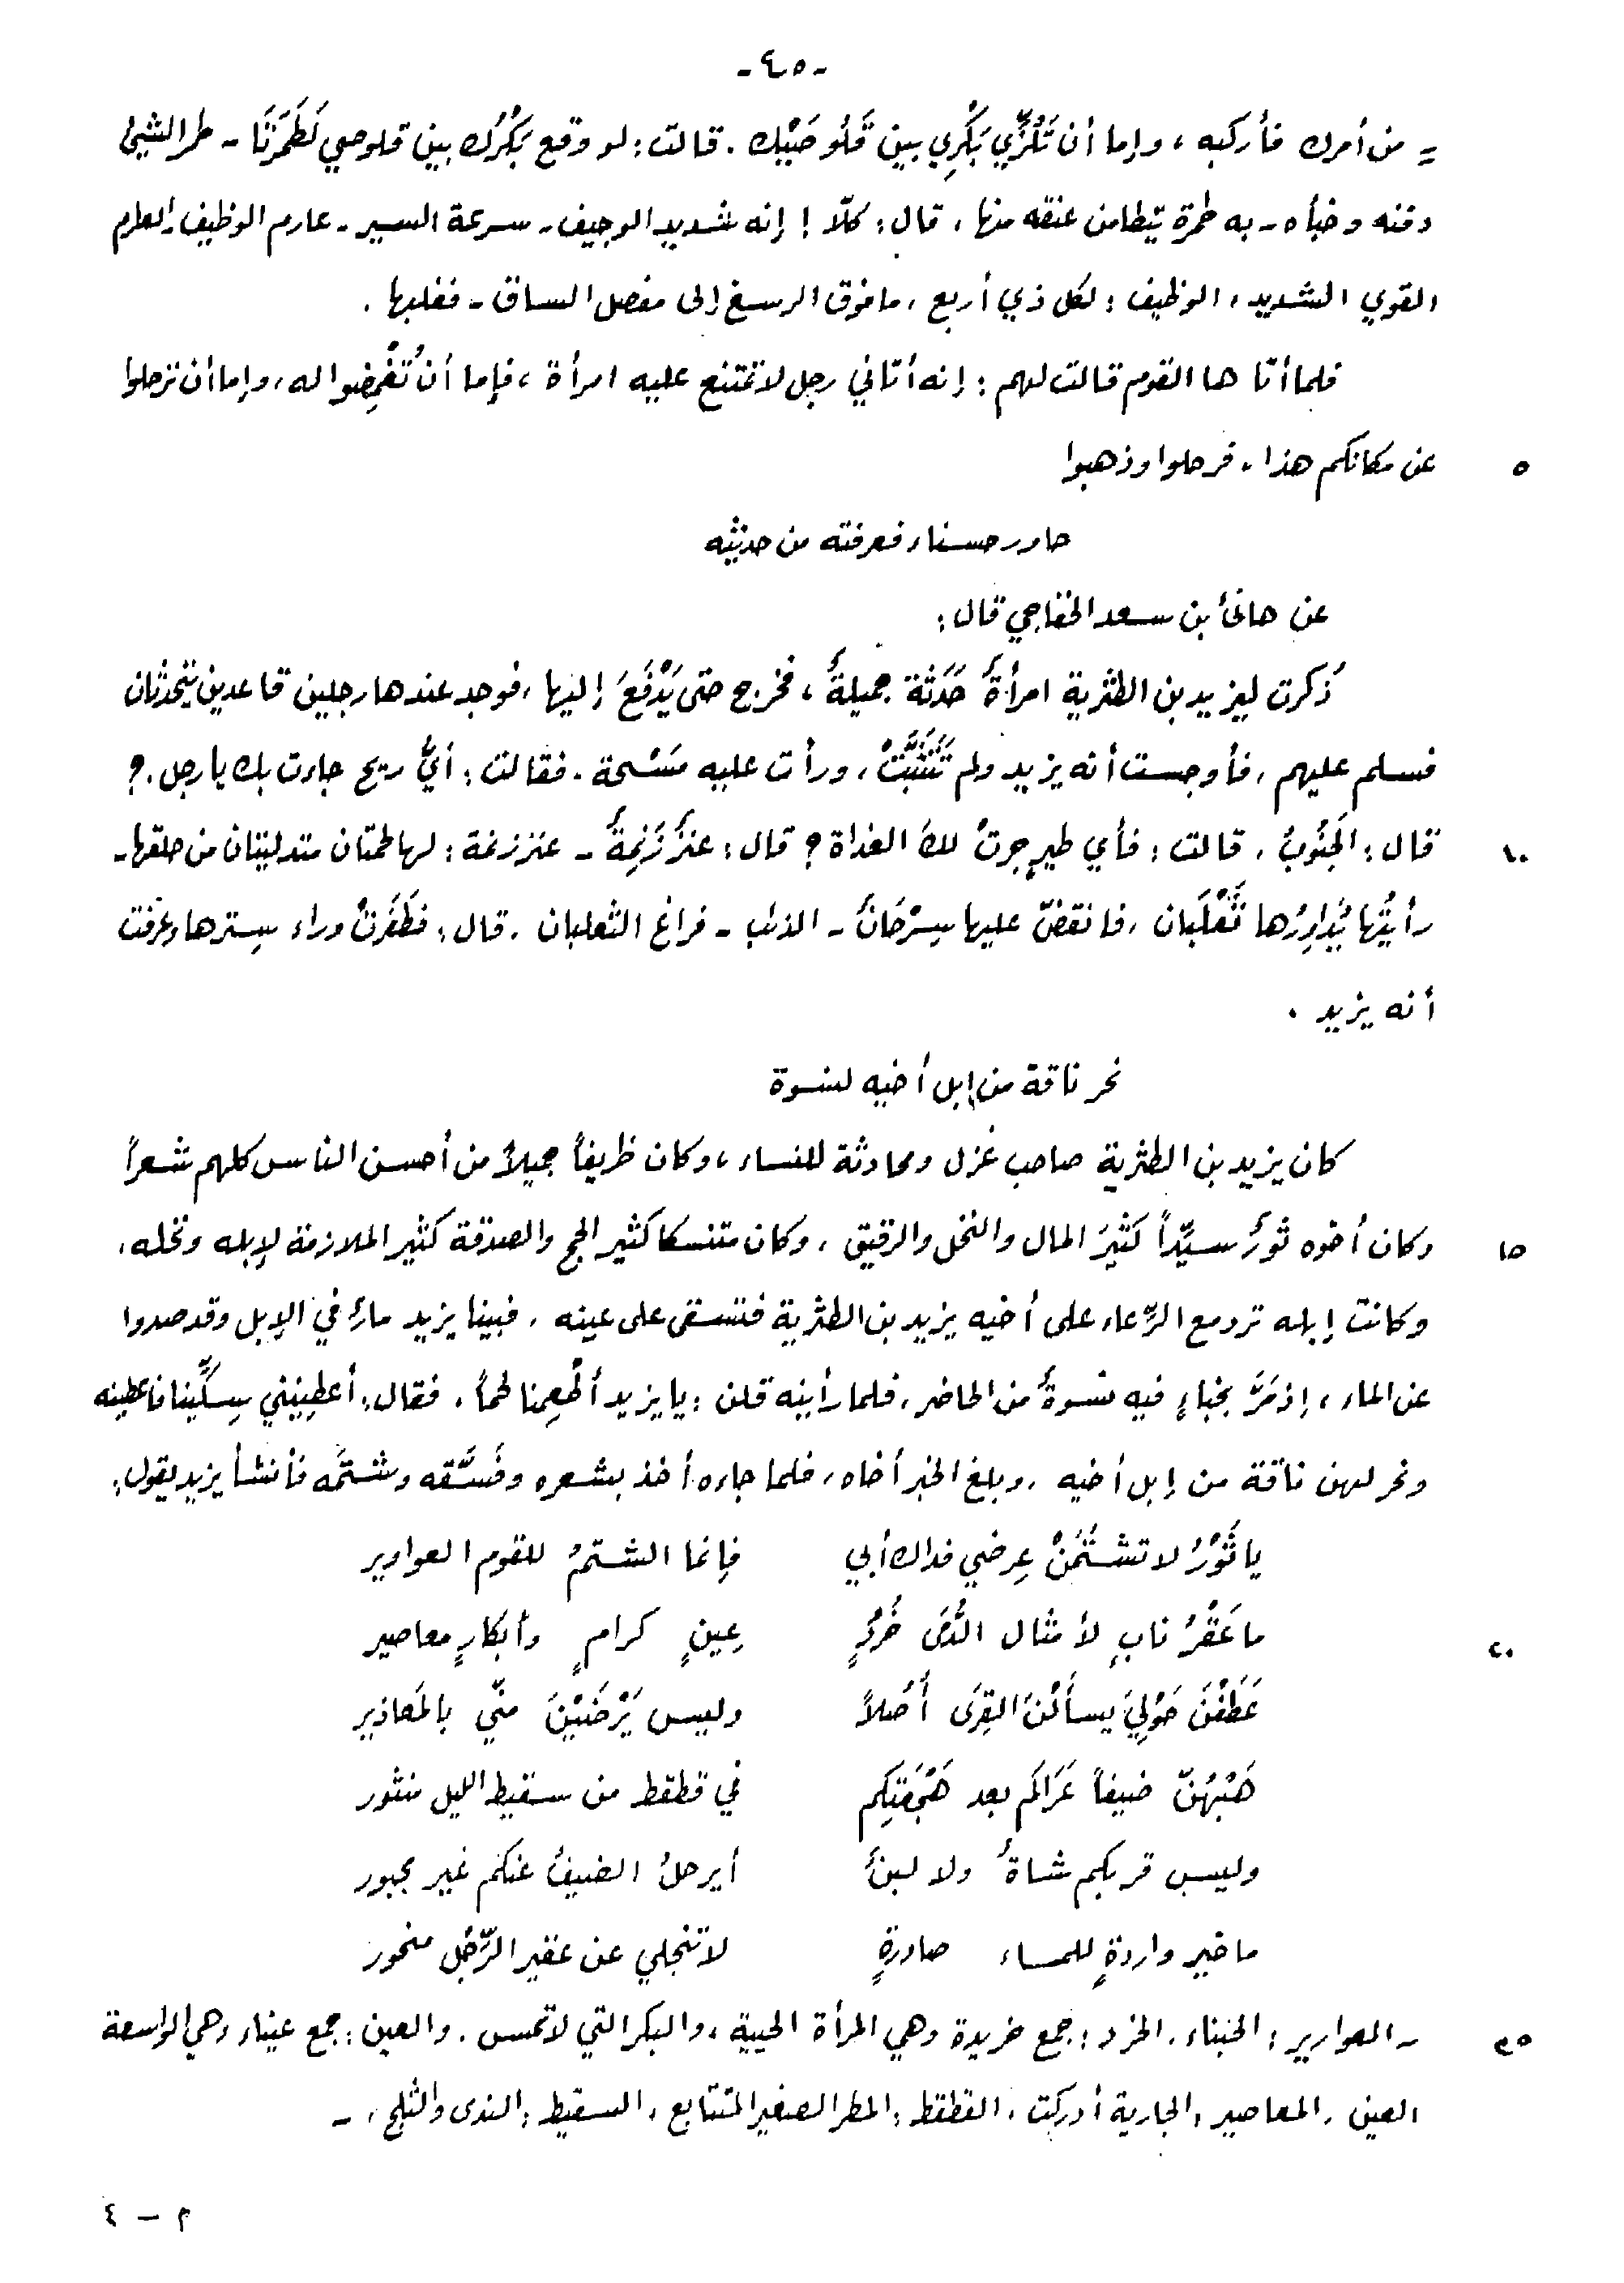 -٤٥-
= من أمرك فأركبه ، وإما أن تَلُزِّي بَكْرِي بين قَلُوصَيْكِ . قالت : لو وقع بَكْرُك بين قلوصي لَطَمَرَتَا - طمر الشيئ
دفنه وخبأه - به طمرة يتطامن عنقه منها ، قال : كلّا ! إنه شديد الوجيف - سرعة السير - عارم الوظيف ، العارم
القوي الشديد ، الوظيف : لكل ذي أربع ، ما فوق الرسغ إلى مفصل الساق - فغلبها .
فلما أتاها القوم قالت لهم : إنه أتاني رجل لا تمتنع عليه امرأة ، فإما أن تُغْمِضُوا له ، وإما أن ترحلوا
٥ عن مكانكم هذا ، فرحلوا وذهبوا
حاور حسناء فعرفته من حديثه
عن هانئ بن سعد الخفاجي قال :
ذُكرت ليزيد بن الطثرية امرأةٌ حَدَثة جميلةٌ ، فخرج حتى يَدْفَعَ إليها ، فوجد عندها رجلين قاعدين يتحدثان
فسلم عليهم ، فأوجست أنه يزيد ولم تَتَثَبَّتْ ، ورأت عليه مَسْحة . فقالت : أيُّ ريح جاءت بك يا رجل . ؟
١٠ قال : الجَنُوبُ ، قالت : فأي طيرٍ جرتْ لك الغداة ؟ قال : عنزٌ زَنِمةٌ - عنز زنمة : لها لحمتان متدليتان من حلقها -
رأيتُها يُدَاوِرُها ثَعْلَبان ، فانقضّ عليها سِرْحَانٌ - الذئب - فراغ الثعلبان ، قال : فطَفَرتْ وراء سِترها وعرفت
أنه يزيد .
نحر ناقة من إبل أخيه لنسوة
كان يزيد بن الطثرية صاحب غزل ومحادثة للنساء ، وكان ظريفاً جميلاً من أحسن الناس كلهم شعراً
١٥ وكان أخوه ثورٌ سيّداً كثيرَ المال والنخل والرقيق ، وكان متنسكا كثير الحج والصدقة كثير الملازمة لإبله ونخله ،
وكانت إبله ترد مع الرِّعاء على أخيه يزيد بن الطثرية فتسقى على عينه ، فبينا يزيد مارٌ في الإبل وقد صدروا
عن الماء ، إذ مَرَّ بخباءٍ فيه نسوةٌ من الحاضر ، فلما رأينه قلن : يا يزيد أطْعِمنا لحماً ، فقال : أعطِينَني سِكِّينا فأعطينه
ونحر لهن ناقة من إبل أخيه ، وبلغ الخبر أخاه ، فلما جاءه أخذ بشعره وفَسَّقه وشتمَه فأنشأ يزيد يقول :
يا ثَوْرُ لا تشتُمَنْ عِرضي فداك أبي فإنما الشتمُ للقوم العوارير
٢٠ ما عَقْرُ نابٍ لأمثال الدُّمَى خُرُدٍ عِينٍ كرامٍ وأبكارٍ معاصير
عَطَفْنَ حَوْلِيَ يسأَلْنَ القِرَى أُصُلاً وليس يَرْضَيْنَ منّي بالمَعاذير
هَبْهُنّ ضيفاً عَرَاكم بعد هَجْعَتِكم في قطقط من سقيط الليل منثور
وليس قربكم شاةٌ ولا لبنٌ أيرحلُ الضيفُ عنكم غير مجبور
ما خير واردةٍ للماء صادرةٍ لا تنجلي عن عقير الرِّجْلِ منحور
٢٥ - العوارير : الجبناء ، الخرد : جمع خريدة وهي المرأة الحيية ، والبكر التي لا تمس . والعين : جمع عيناء وهي الواسعة
العين ، المعاصير ، الجارية أدركت ، القطقط : المطر الصغير المتتابع ، السقيط : الندى والثلج ، -
م - ٤